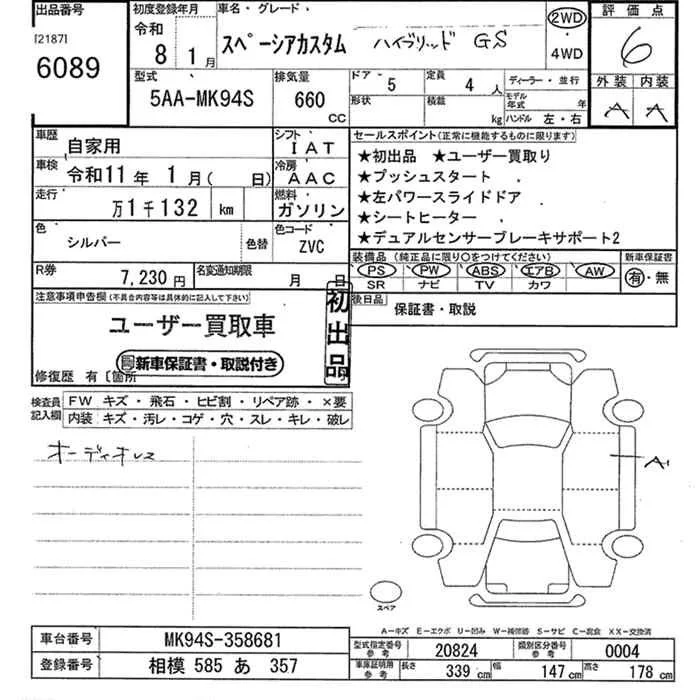 出品番号
[2187]
6089
初度登録年月
令和
8 1月
車名・グレード・
スペーシアカスタム ハイブリッド GS
2WD
・
4WD
評価点
6
外装 内装
A A
型式
5AA-MK94S
排気量
660
CC
ドア・
5
定員
4人
ディーラー・並行
形状
積載
kg
モデル年式 年
ハンドル 左・右
車歴
自家用
シフト
IAT
車検
令和11年 1月( 日)
冷房
AAC
走行
万1千132 km
燃料
ガソリン
色
シルバー
色替
色コード
ZVC
R券
7,230円
名変通知期限
月 日
セールスポイント(正常に機能するものに限ります)
★初出品 ★ユーザー買取り
★プッシュスタート
★左パワースライドドア
★シートヒーター
★デュアルセンサーブレーキサポート2
装備品 (純正品に限り○をつけてください)
PS PW ABS エアB AW
SR ナビ TV カワ
新車保証書
有・無
後日品
保証書・取説
注意事項申告欄(不具合内容等は具体的に記入して下さい)
ユーザー買取車
新車保証書・取説付き
初出品
修復歴 有〔箇所
検査員記入欄
FW キズ・飛石・ヒビ割・リペア跡・×要
内装 キズ・汚レ・コゲ・穴・スレ・キレ・破レ
オーディオレス
A1
スペア
A―キズ E―エクボ U―凹み W―補修跡 S―サビ C―腐食 XX―交換済
車台番号
MK94S-358681
登録番号
相模 585 あ 357
型式指定番号
参考
20824
類別区分番号
参考
0004
車庫証明用
参考
長さ
339 cm
幅
147 cm
高さ
178 cm